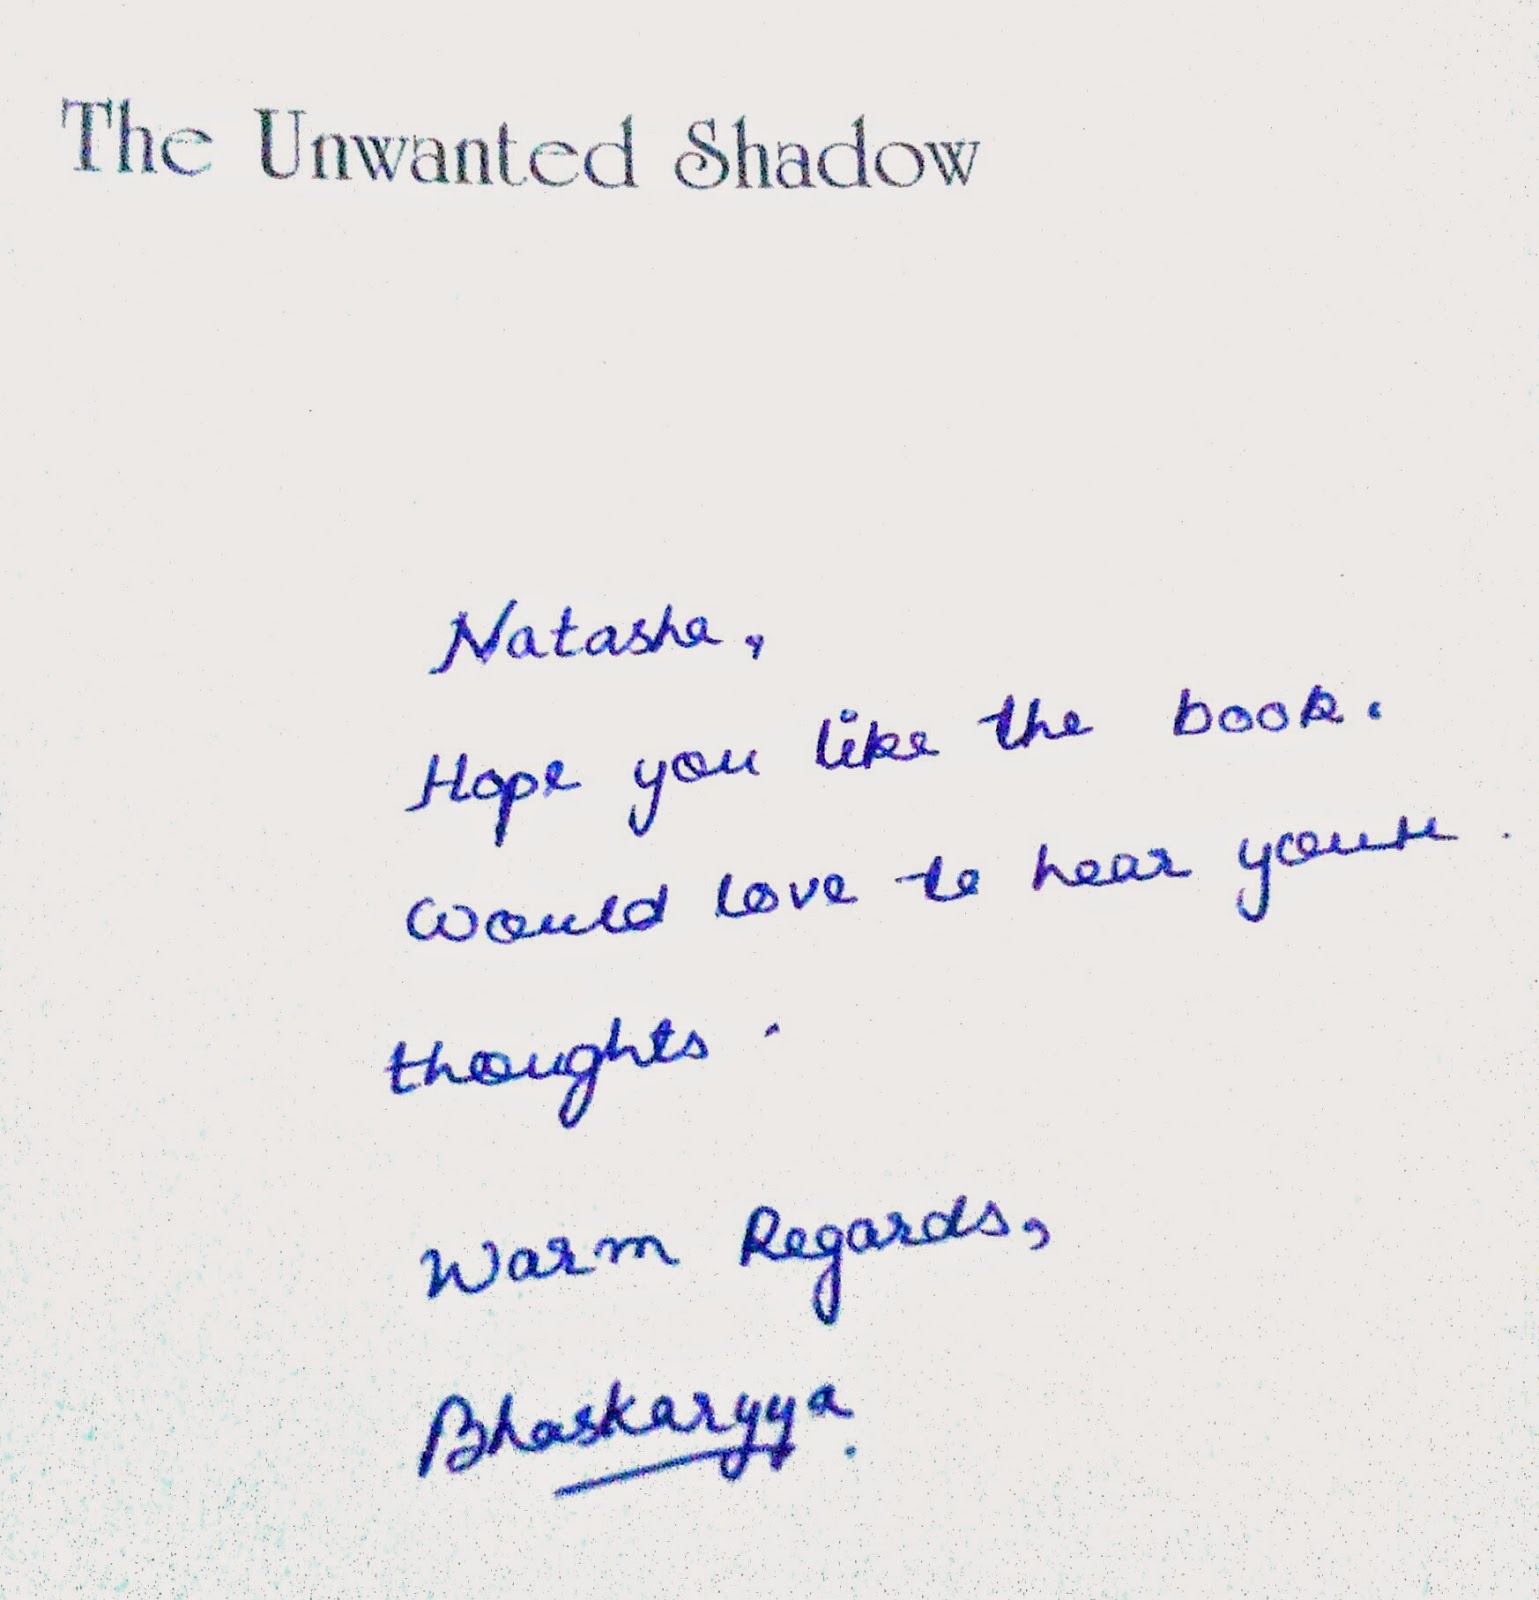 The Unwanted Shadow
Natasha,
Hope you like the book.
Would love to hear your
thoughts.
Warm Regards,
Bhaskaryya.